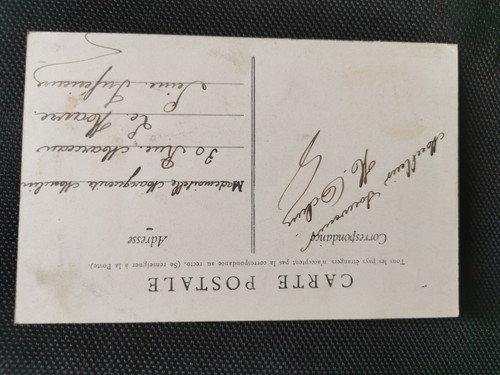 CARTE POSTALE
Tous les pays étrangers n'acceptent pas la correspondance au recto. (Se renseigner à la Poste).
Correspondance
Meilleurs
Souvenirs
Adresse
Mademoiselle Marguerite
30 Rue Marceau
Le Havre
Seine Inférieure